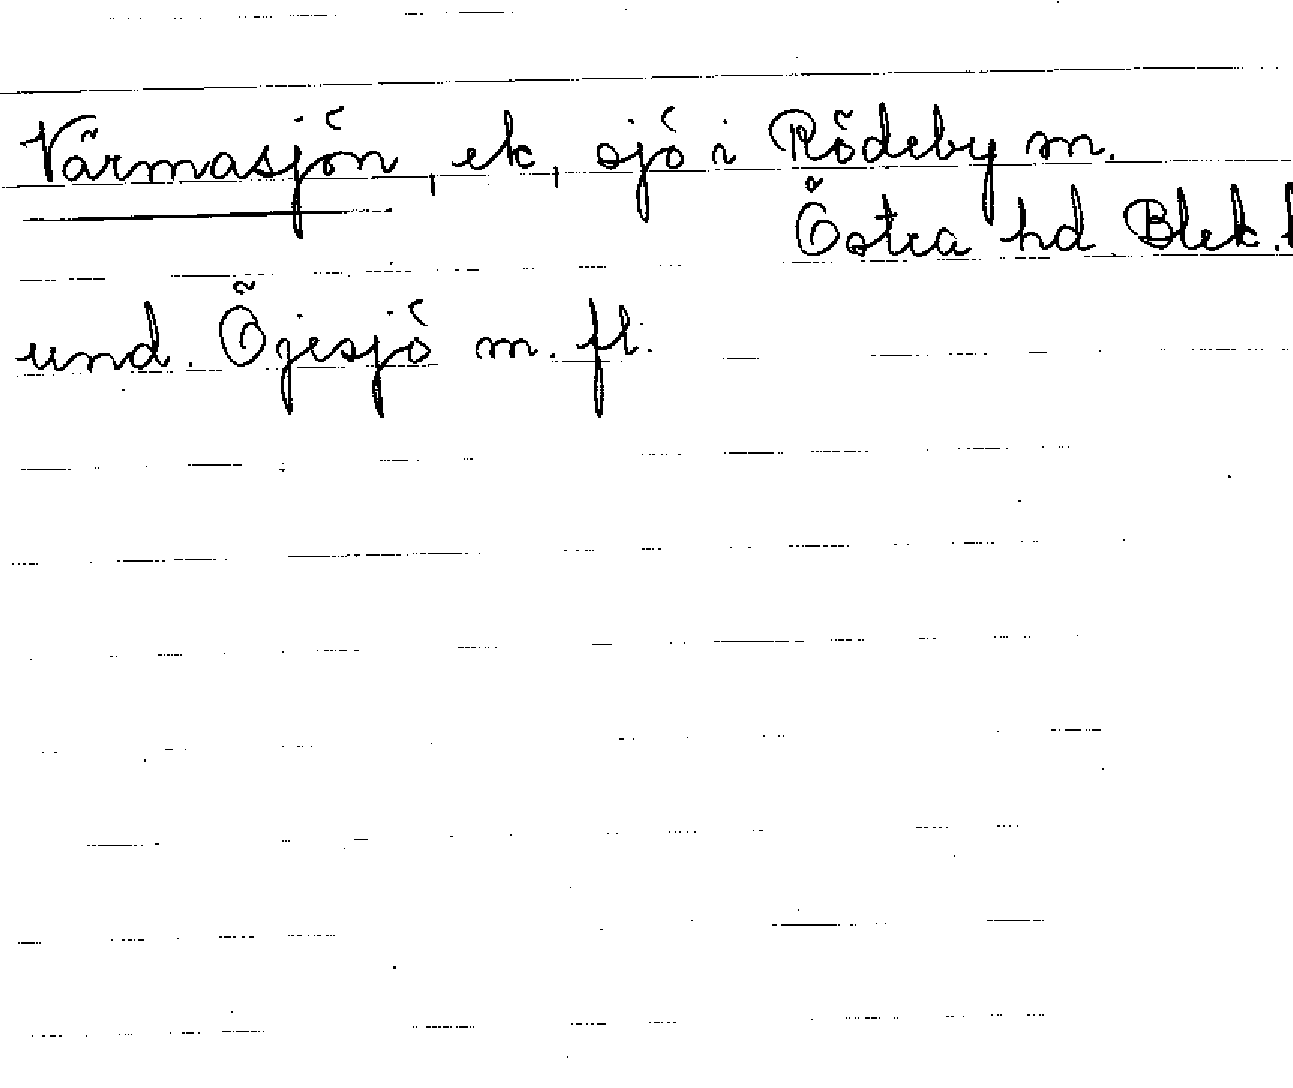 Värmasjön, ek, sjö i Rödeby m.
Östra hd Blek. l
und. Öjesjö m. fl.